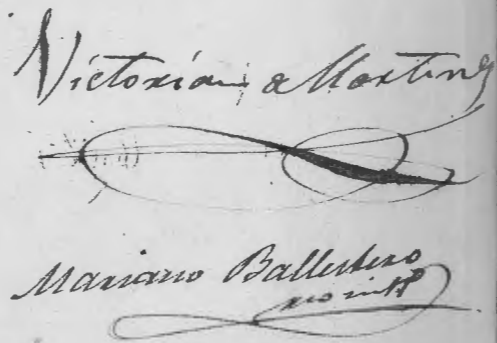 Victorián, a Martín
Mariano Ballestero